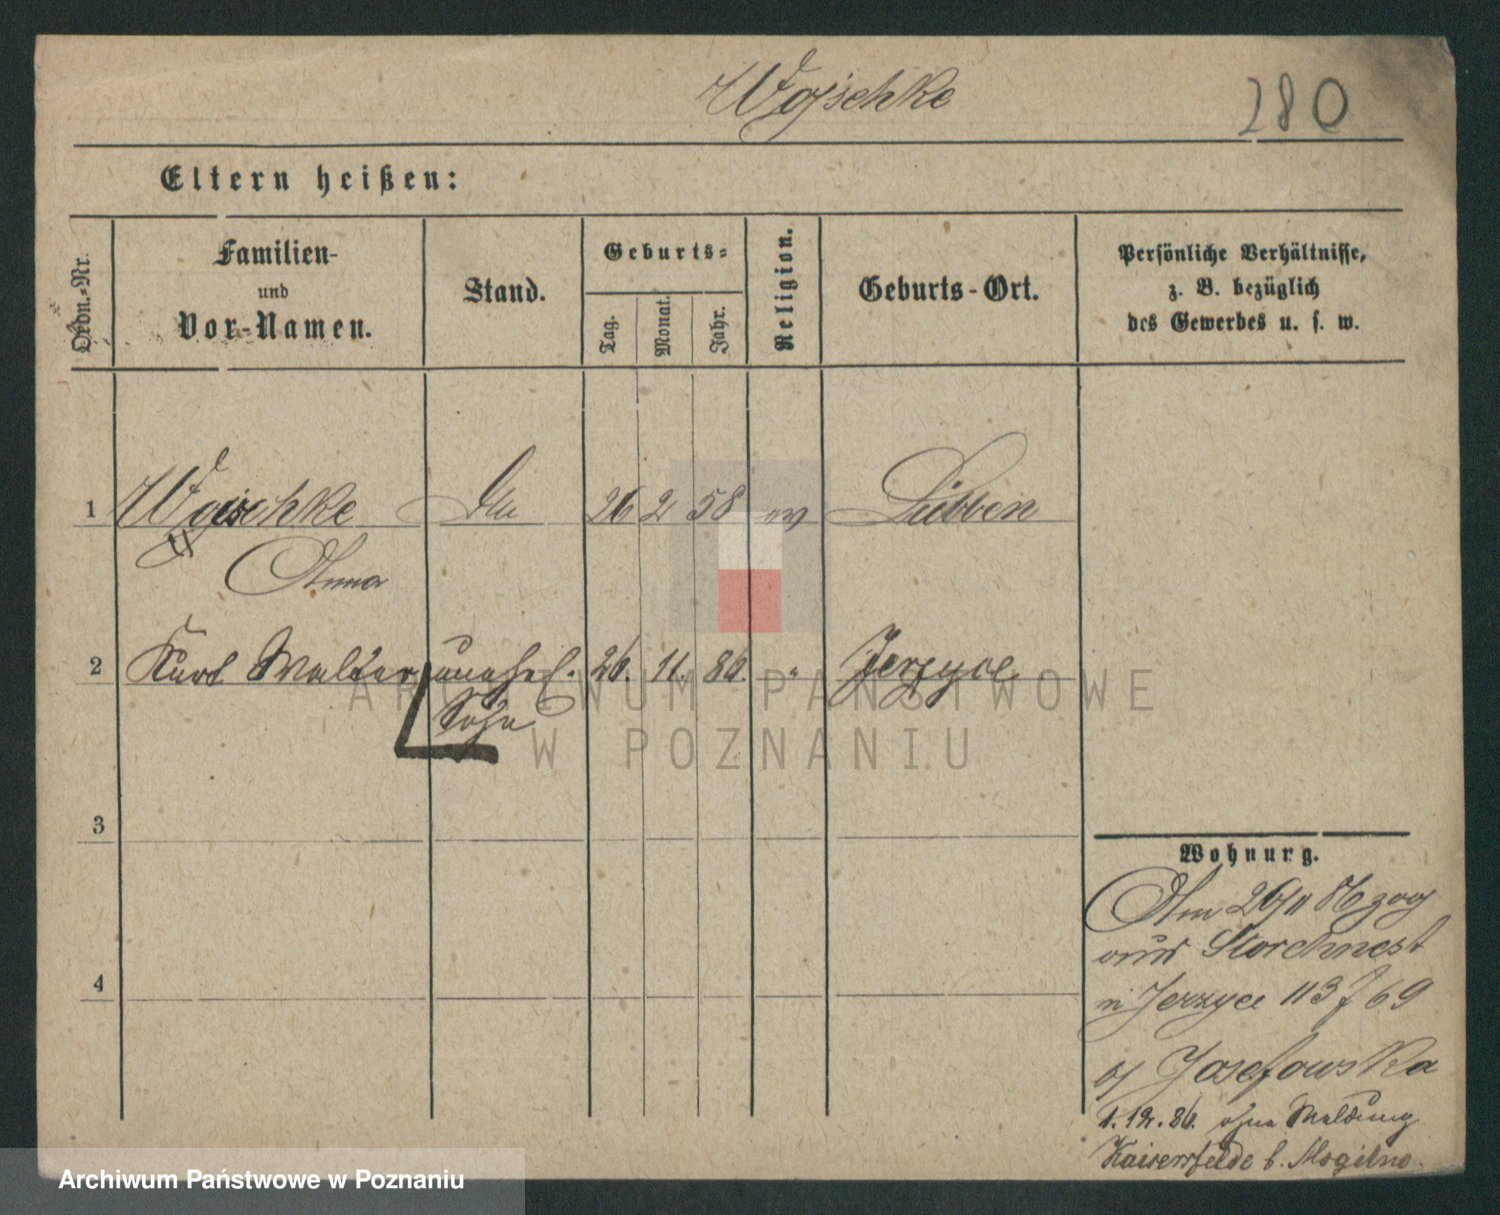 Wojschke
280
Eltern heißen:
Ordn.-Nr.
Familien-
und
Vor-Namen.
Stand.
Geburts-
Tag.
Monat.
Jahr.
Religion.
Geburts-Ort.
Persönliche Verhältnisse,
z. B. bezüglich
des Gewerbes u. s. w.
1 26 2 58 Lübben
Anna
2 Kurt Walter unehel. 26. 11. 86. " Jerzyce
Sohn
ARCHIWUM PAŃSTWOWE
W POZNANIU
3
4
Wohnung.
Am 26/11 86 zog
aus Storchnest
n Jerzyce 113 f 69
b/ Josefowska
1.12.86. ohne Meldung
Kaisersfelde b. Mogilno
Archiwum Państwowe w Poznaniu